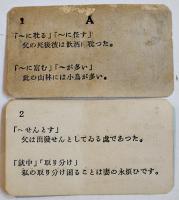 1 A
「〜に耽る」「〜に任す」
父の死後彼は飲酒に耽つた。
「〜に富む」「〜が多い」
此の山林には小鳥が多い。
2
「〜せんとす」
父は出發せんとしてゐる處であつた。
「就中」「取り分け」
私の取り分け困ることは妻の永煩ひです。